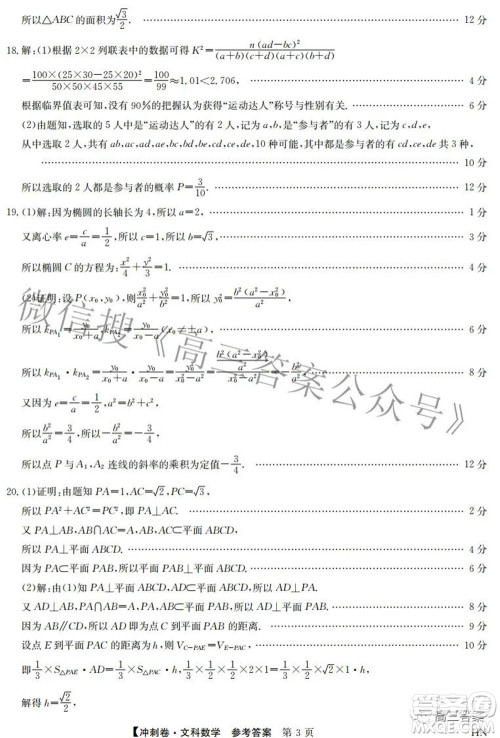 所以△ABC的面积为√3/2. 12分
18.解:(1)根据2×2列联表中的数据可得K²=n(ad-bc)²/((a+b)(c+d)(a+c)(b+d))
=100×(25×30-25×20)²/(50×50×45×55)=100/99≈1.01<2.706, 4分
根据临界值表可知,没有90%的把握认为获得“运动达人”称号与性别有关. 6分
(2)由题知,选取的5人中是“运动达人”的有2人,记为a,b,是“参与者”的有3人,记为c,d,e,
从中选取2人,共有ab,ac,ad,ae,bc,bd,be,cd,ce,de,10种可能,其中都是参与者的有cd,ce,de共3种,
10分
所以选取的2人都是参与者的概率P=3/10. 12分
19.(1)解:因为椭圆的长轴长为4,所以a=2, 1分
又离心率e=c/a=1/2,所以c=1,所以b=√3,
所以椭圆C的方程为:x²/4+y²/3=1. 4分
(2)证明:设P(x₀,y₀),则x₀²/a²+y₀²/b²=1,所以y₀²=b²(a²-x₀²)/a²
所以k_PA₁=y₀/(x₀+a),k_PA₂=y₀/(x₀-a)(x₀≠±a), 6分
所以k_PA₁·k_PA₂=y₀/(x₀+a)·y₀/(x₀-a)=y₀²/(x₀²-a²)=(b²(a²-x₀²)/a²)/(x₀²-a²)=-b²/a². 8分
又因为e=c/a=1/2,a²=b²+c²,
所以b²/a²=3/4,所以-b²/a²=-3/4,
所以点P与A₁,A₂连线的斜率的乘积为定值-3/4. 12分
20.(1)证明:由题知PA=1,AC=√2,PC=√3,
所以PA²+AC²=PC²,即PA⊥AC. 2分
又PA⊥AB,AB∩AC=A,AB,AC⊂平面ABCD,
所以PA⊥平面ABCD. 4分
(2)解:由(1)知PA⊥平面ABCD,AD⊂平面ABCD,所以AD⊥PA.
又AD⊥AB,PA∩AB=A,PA,AB⊂平面PAB,所以AD⊥平面PAB. 8分
因为AB∥CD,所以AD即为点C到平面PAB的距离. 9分
设点E到平面PAC的距离为h,则V_C-PAE=V_E-PAC, 10分
即1/3×S△PAE·AD=1/3×S△PAC·h,1/3×1/2×1/2×2×1=1/3×1/2×1×√2×h,
解得h=√2/2, 12分
【冲刺卷·文科数学 参考答案 第3页 HN
微信搜《高三答案公众号》
高三答案